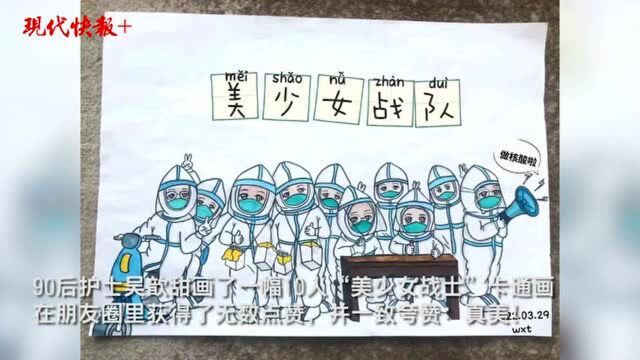 现代快报+
měi shǎo nǚ zhàn duì
美少女战队
做核酸啦
90后护士吴歆甜画了一幅10人“美少女战士”卡通画
在朋友圈里获得了无数点赞，并一致夸赞：真美！
22.03.29
wxt